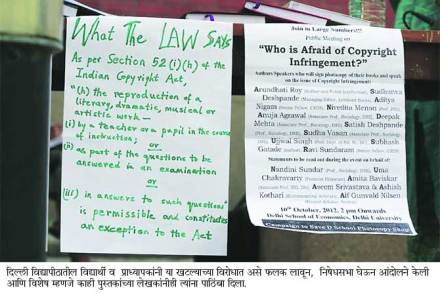 What The LAW SAYS
As per Section 52 (i)(h) of the
Indian Copyright Act,
"(h) the reproduction of a
literary, dramatic, musical or
artistic work —
(i) by a teacher or a pupil in the course
of instruction; or
(ii) as part of the questions to be
answered in an examination
or
(iii) in answers to such questions"
is permissible and constitutes
an exception to the Act
Join in Large Numbers!!!
Public Meeting on
"Who is Afraid of Copyright
Infringement?"
Authors/Speakers who will sign photocopy of their books and speak
on the issue of Copyright Infringement:
Arundhati Roy Sudhanva
Deshpande Aditya
Nigam Nivedita Menon
Anuja Agrawal Deepak
Mehta Satish Deshpande
Sudha Vasan
Ujjwal Singh Subhash
Gatade Ravi Sundaram
Statements to be read out during the event on behalf of:
Nandini Sundar Uma
Chakravarty Amita Baviskar
Aseem Srivastava & Ashish
Kothari Alf Gunvald Nilsen
10th October, 2012, 2 pm Onwards
Delhi School of Economics, Delhi University
Campaign to Save D School Photocopy Shop
दिल्ली विद्यापीठातील विद्यार्थी व प्राध्यापकांनी या खटल्याच्या विरोधात असे फलक लावून, निषेधसभा घेऊन आंदोलने केली
आणि विशेष म्हणजे काही पुस्तकांच्या लेखकांनीही त्यांना पाठिंबा दिला.